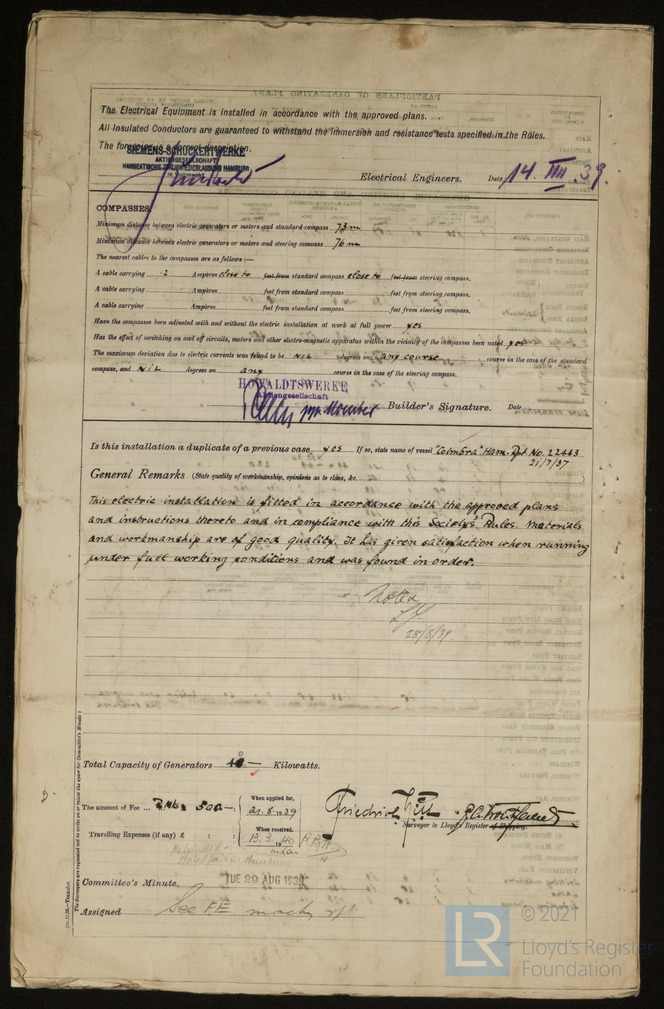 The Electrical Equipment is installed in accordance with the approved plans.
All Insulated Conductors are guaranteed to withstand the immersion and resistance tests specified in the Rules.
The foregoing is a correct description.
SIEMENS-SCHUCKERTWERKE
AKTIENGESELLSCHAFT
HANSEATISCHE ZWEIGNIEDERLASSUNG HAMBURG
Electrical Engineers. Date 14. VIII. 39.
COMPASSES.
Minimum distance between electric generators or motors and standard compass 73 m
Minimum distance between electric generators or motors and steering compass 76 m
The nearest cables to the compasses are as follows:—
A cable carrying .2 Ampères close to feet from standard compass close to feet from steering compass.
A cable carrying Ampères feet from standard compass feet from steering compass.
A cable carrying Ampères feet from standard compass feet from steering compass.
Have the compasses been adjusted with and without the electric installation at work at full power yes
Has the effect of switching on and off circuits, motors and other electro-magnetic apparatus within the vicinity of the compasses been noted yes
The maximum deviation due to electric currents was found to be NIL degrees on any course course in the case of the standard
compass, and NIL degrees on any course in the case of the steering compass.
HOWALDTSWERKE
Aktiengesellschaft
Builder's Signature. Date
Is this installation a duplicate of a previous case yes If so, state name of vessel "Coimbra" Ham. Rpt No. 22443
21/7/37
General Remarks (State quality of workmanship, opinions as to class, &c.
This electric installation is fitted in accordance with the approved plans
and instructions thereto and in compliance with this Society's Rules. Materials
and workmanship are of good quality. It has given satisfaction when running
under full working conditions and was found in order.
Noted
25/8/39.
Total Capacity of Generators Kilowatts.
The amount of Fee ... RMs 500—: When applied for, 21.8.1939
Friedrich
Surveyor to Lloyd's Register of Shipping.
Travelling Expenses (if any) £ : : When received. 13.3.1940
Committee's Minute TUE 29 AUG 1939
Assigned See F.E. machy rpt.
(The Surveyors are requested not to write on or below the space for Committee's Minute.)
© 2021
LR
Lloyd's Register
Foundation